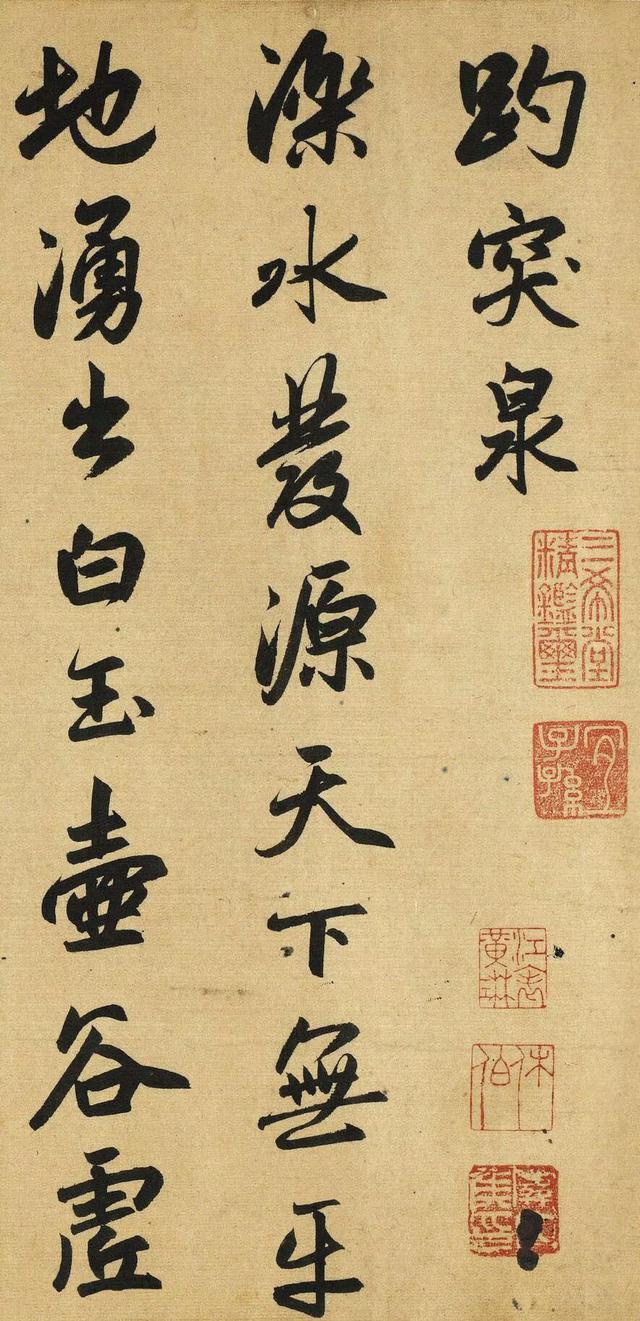 趵突泉
濼水發源天下無平
地湧出白玉壺谷虛
三希堂精鑑璽
宜子孫
江表黃琳
休伯